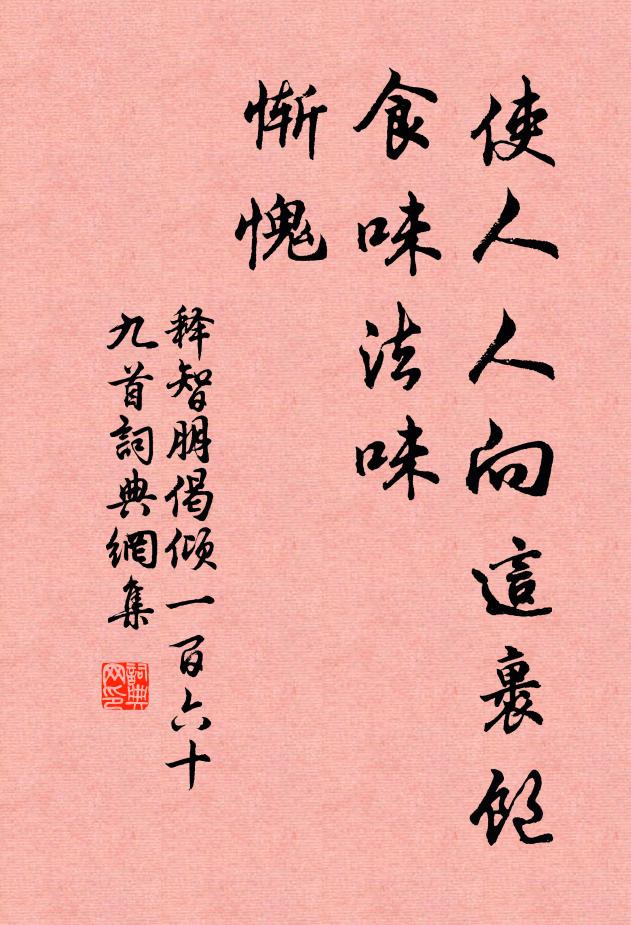 使人人向這裹飽
食味法味
慚愧
释智朋偈倾一百六十
九首詞典網集
詞典
网印